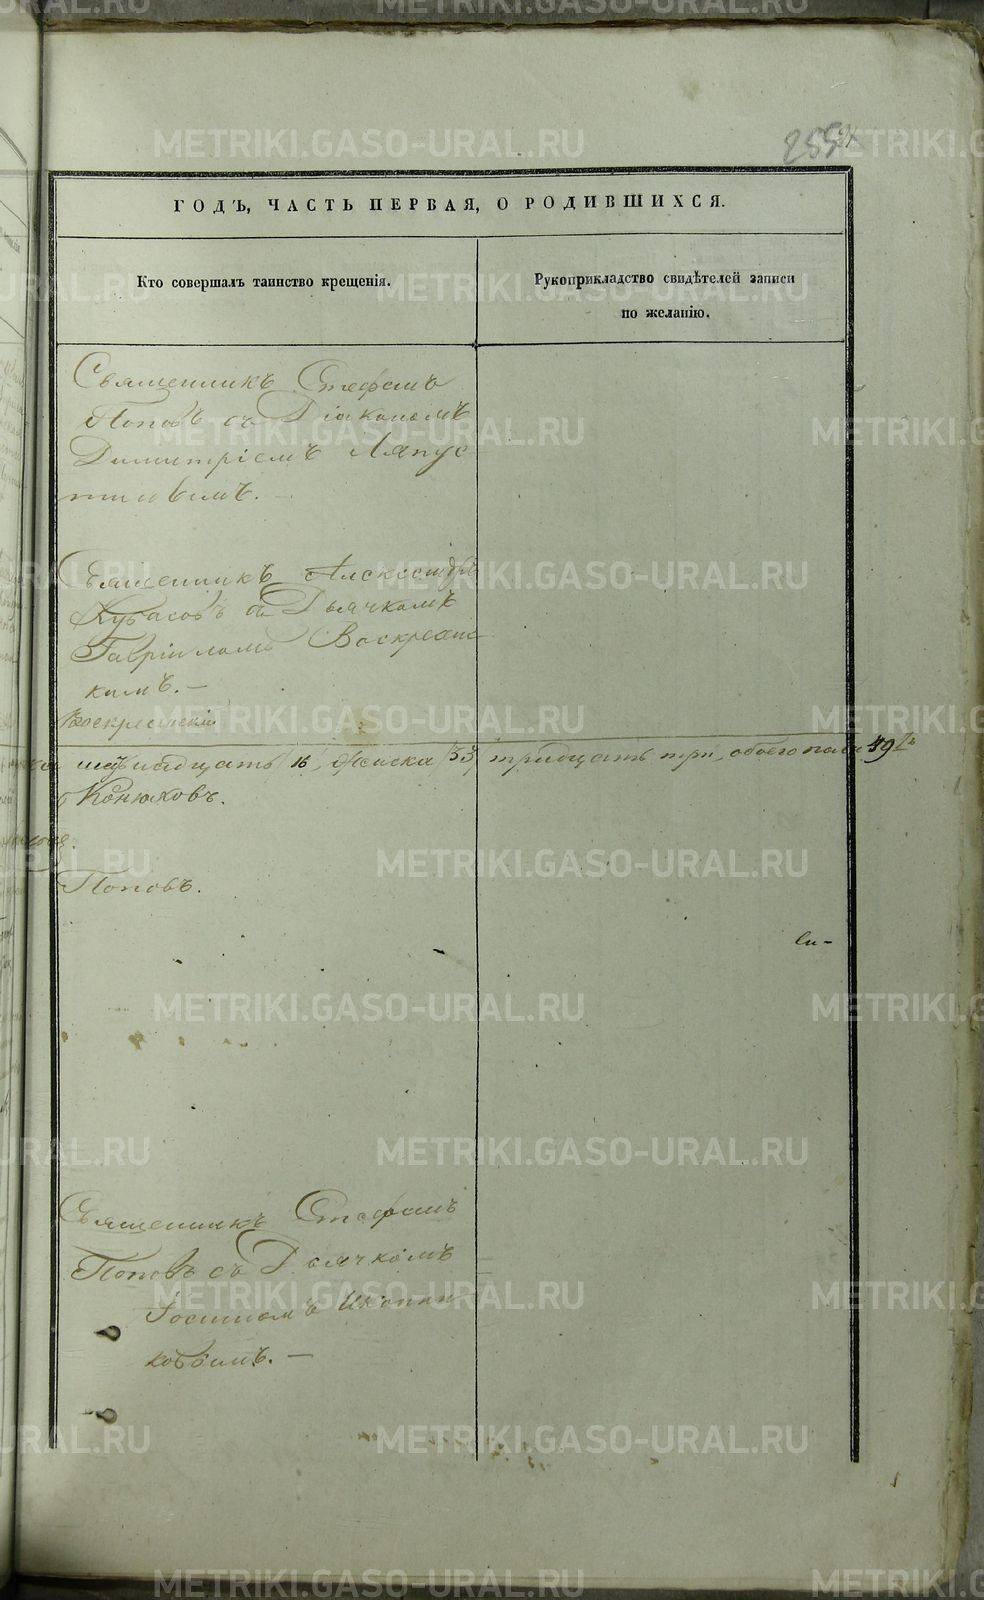 255
ГОДЪ, ЧАСТЬ ПЕРВАЯ, О РОДИВШИХСЯ.
Кто совершалъ таинство крещенія.
Рукоприкладство свидѣтелей записи
по желанію.
Священникъ Стефанъ
Поповъ съ Діакономъ
Димитріемъ Ляпус
тинымъ.
Священникъ Александръ
Кубасовъ съ Дьячкомъ
Гавріиломъ Воскресенс
кимъ. —
Воскресенскій
шеснадцать 16, женска 33, тридцать три, обоего пола 49
Конюховъ.
Поповъ.
Священникъ Стефанъ
Поповъ съ Дьячкомъ
ковымъ. —
METRIKI.GASO-URAL.RU